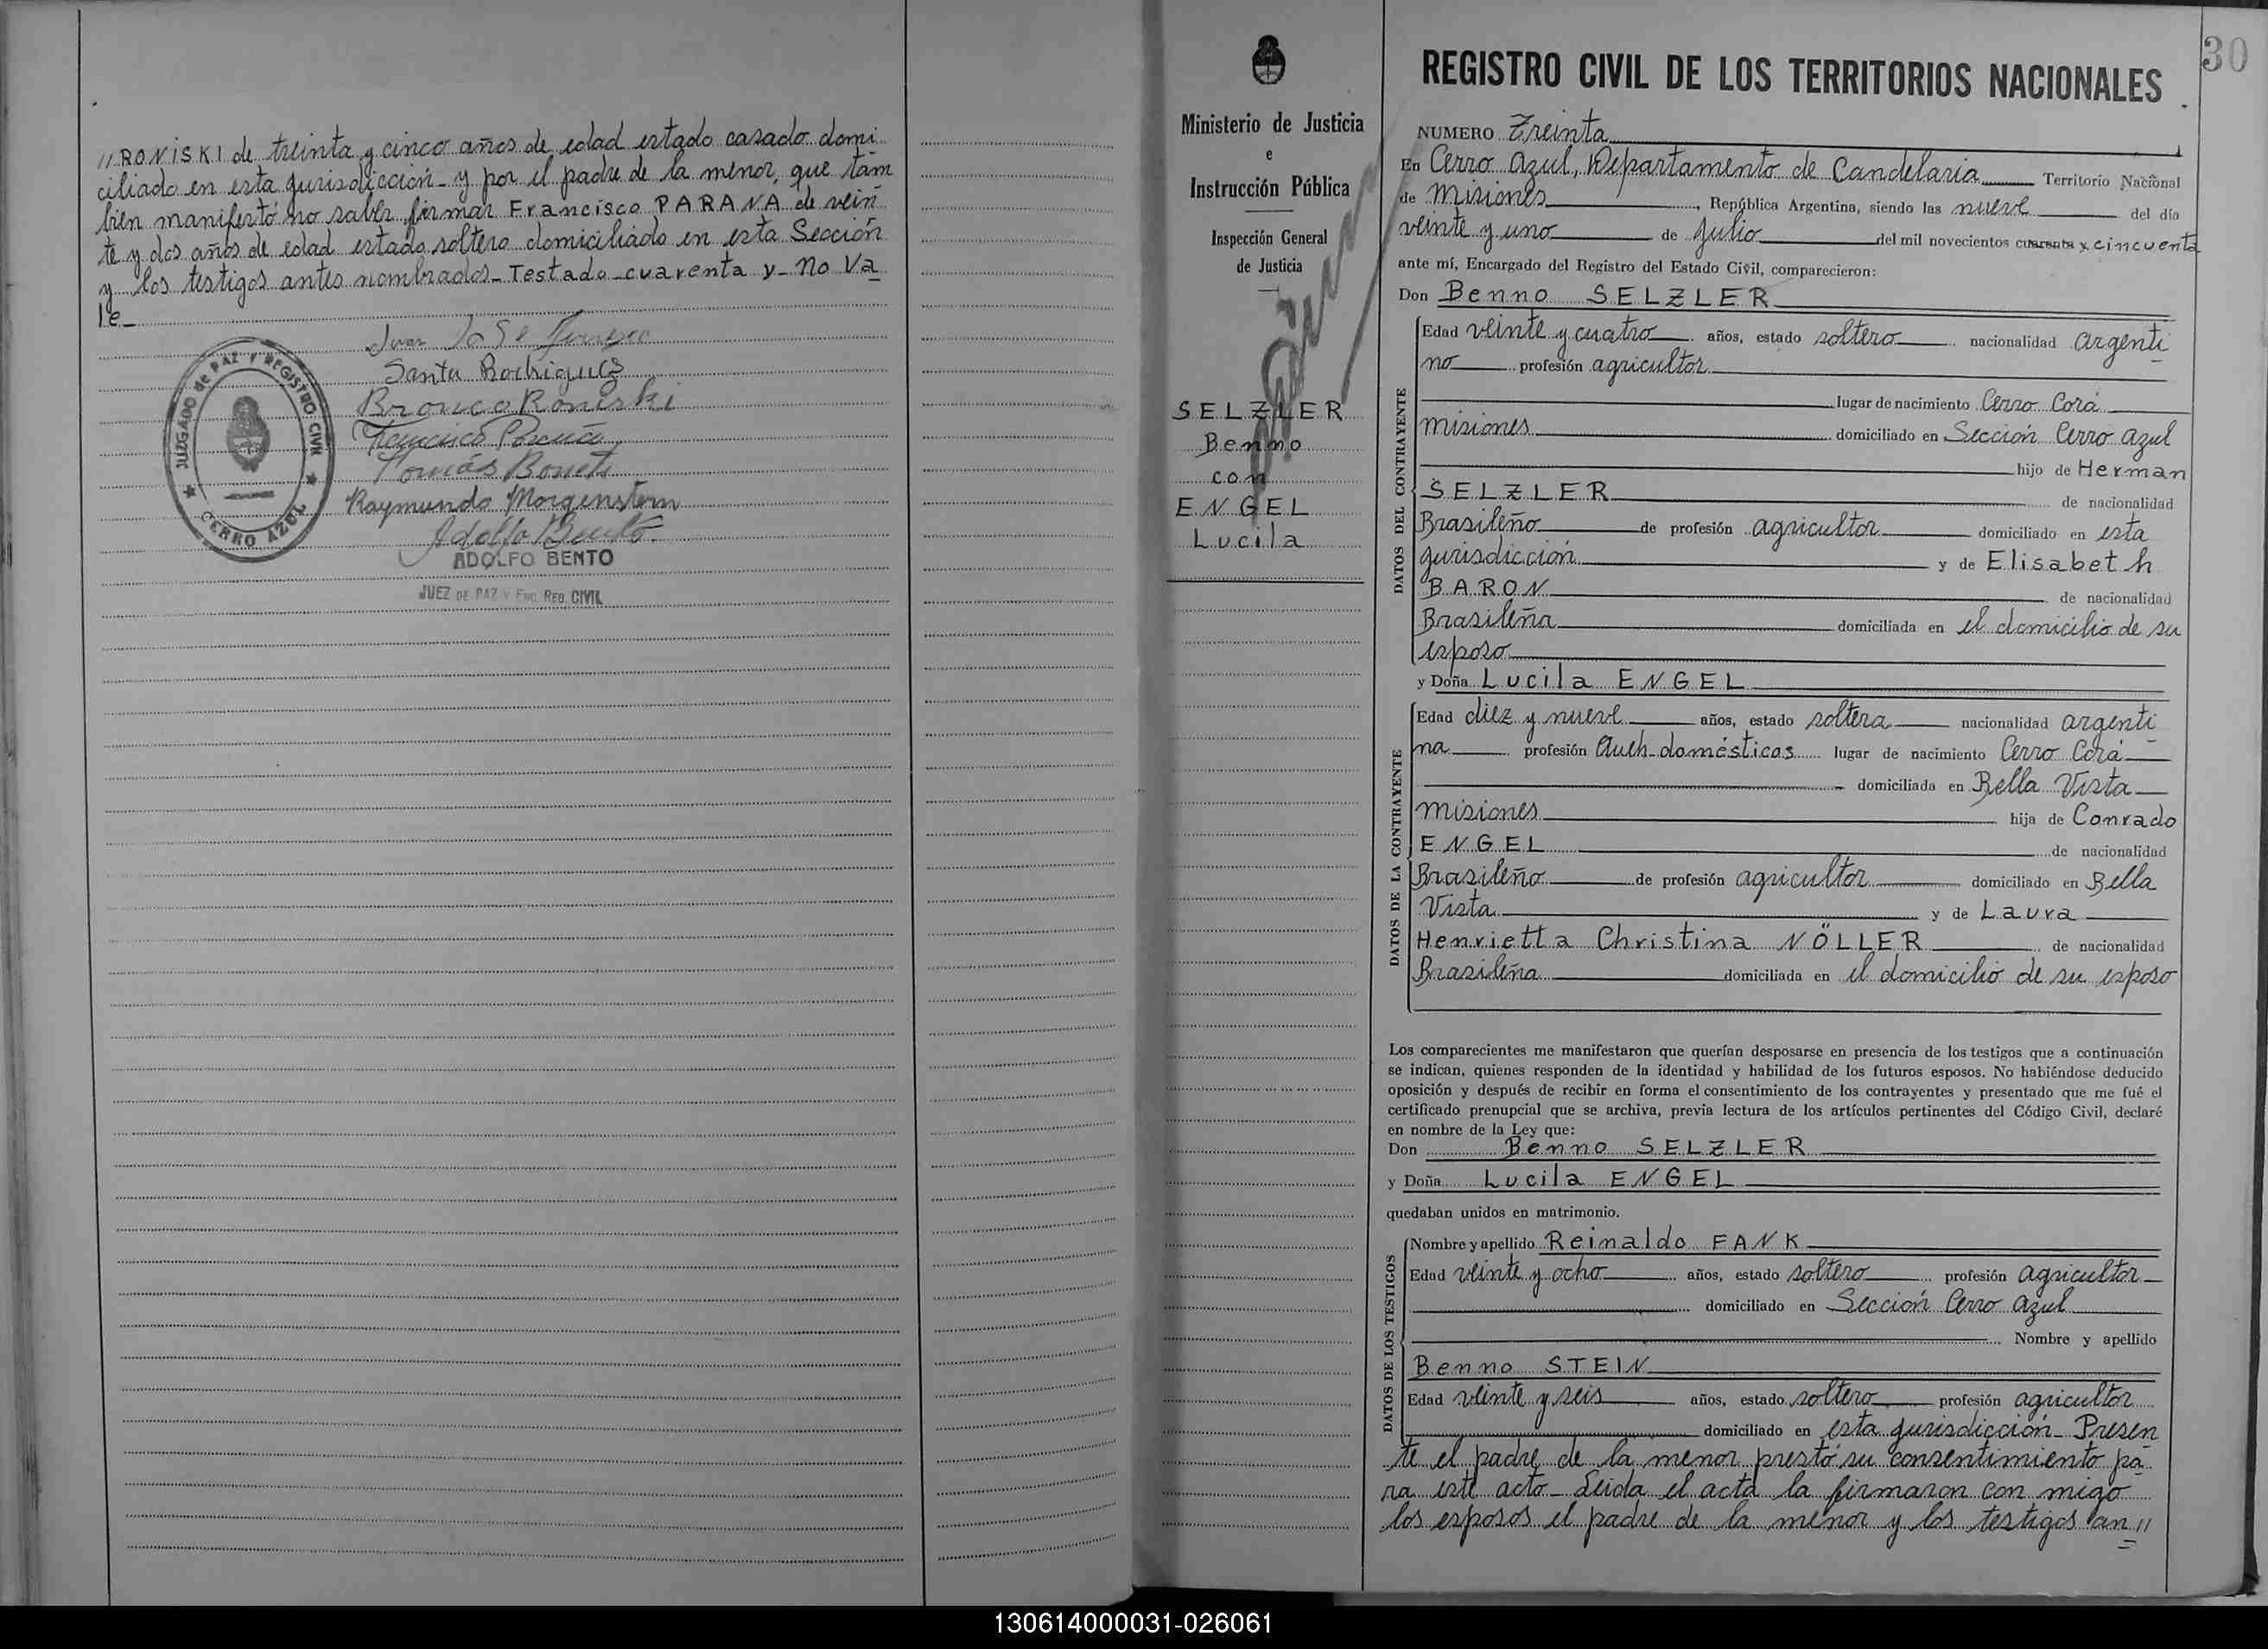 //RONISKI de treinta y cinco años de edad estado casado domi
ciliado en esta jurisdicción_ y por el padre de la menor, que tam
bien manifestó no saber firmar Francisco PARANA de vein
te y dos años de edad estado soltero domiciliado en esta Sección
y los testigos antes nombrados_ Testado_cuarenta y_ no Va
le_
Juan
Santa Rodriguez
Bronico Roniski
Francisco Parana
Tomás Bonet
Raymundo Morgenstern
Adolfo Bento
ADOLFO BENTO
JUEZ DE PAZ Y ENC. REG. CIVIL
JUZGADO de PAZ Y REGISTRO CIVIL
CERRO AZUL
Ministerio de Justicia
e
Instrucción Pública
Inspección General
de Justicia
SELZLER
Benno
con
ENGEL
Lucila
30
REGISTRO CIVIL DE LOS TERRITORIOS NACIONALES
NUMERO Treinta
En Cerro Azul, Departamento de Candelaria Territorio Nacional
de Misiones, República Argentina, siendo las nueve del día
veinte y uno de Julio del mil novecientos cuarenta y cincuenta
ante mí, Encargado del Registro del Estado Civil, comparecieron:
Don Benno SELZLER
DATOS DEL CONTRAYENTE
Edad veinte y cuatro años, estado soltero nacionalidad argenti
no profesión agricultor
lugar de nacimiento Cerro Corá
Misiones domiciliado en Sección Cerro Azul
hijo de Herman
SELZLER de nacionalidad
Brasileño de profesión agricultor domiciliado en esta
jurisdicción y de Elisabeth
BARON de nacionalidad
Brasileña domiciliada en el domicilio de su
esposo
y Doña Lucila ENGEL
DATOS DE LA CONTRAYENTE
Edad diez y nueve años, estado soltera nacionalidad argenti
na profesión Queh_domésticos lugar de nacimiento Cerro Corá
domiciliada en Bella Vista
Misiones hija de Conrado
ENGEL de nacionalidad
Brasileño de profesión agricultor domiciliado en Bella
Vista y de Laura
Henrietta Christina NÖLLER de nacionalidad
Brasileña domiciliada en el domicilio de su esposo
Los comparecientes me manifestaron que querían desposarse en presencia de los testigos que a continuación
se indican, quienes responden de la identidad y habilidad de los futuros esposos. No habiéndose deducido
oposición y después de recibir en forma el consentimiento de los contrayentes y presentado que me fué el
certificado prenupcial que se archiva, previa lectura de los artículos pertinentes del Código Civil, declaré
en nombre de la Ley que:
Don Benno SELZLER
y Doña Lucila ENGEL
quedaban unidos en matrimonio.
DATOS DE LOS TESTIGOS
Nombre y apellido Reinaldo FANK
Edad veinte y ocho años, estado soltero profesión agricultor
domiciliado en Sección Cerro Azul
Nombre y apellido
Benno STEIN
Edad veinte y seis años, estado soltero profesión agricultor
domiciliado en esta jurisdicción_ Presen
te el padre de la menor prestó su consentimiento pa
ra este acto_ Leida el acta la firmaron con migo
los esposos el padre de la menor y los testigos an //
130614000031-026061